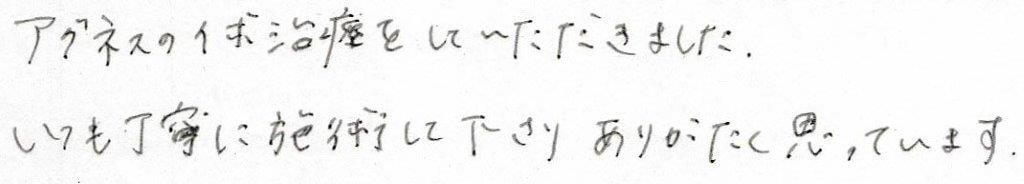 アグネスのイボ治療をしていただきました.
いつも丁寧に施術して下さり ありがたく思っています.